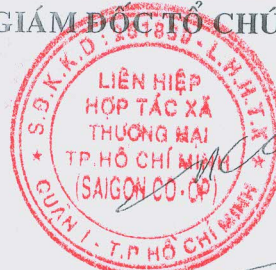 GIÁM ĐỐC TỔ CHỨ
S.Đ.K.K.D
L.H.H.T.X
LIÊN HIỆP
HỢP TÁC XÃ
THƯƠNG MẠI
TP.HỒ CHÍ MINH
(SAIGON CO.OP)
QUẬN I - T.P HỒ CHÍ MINH